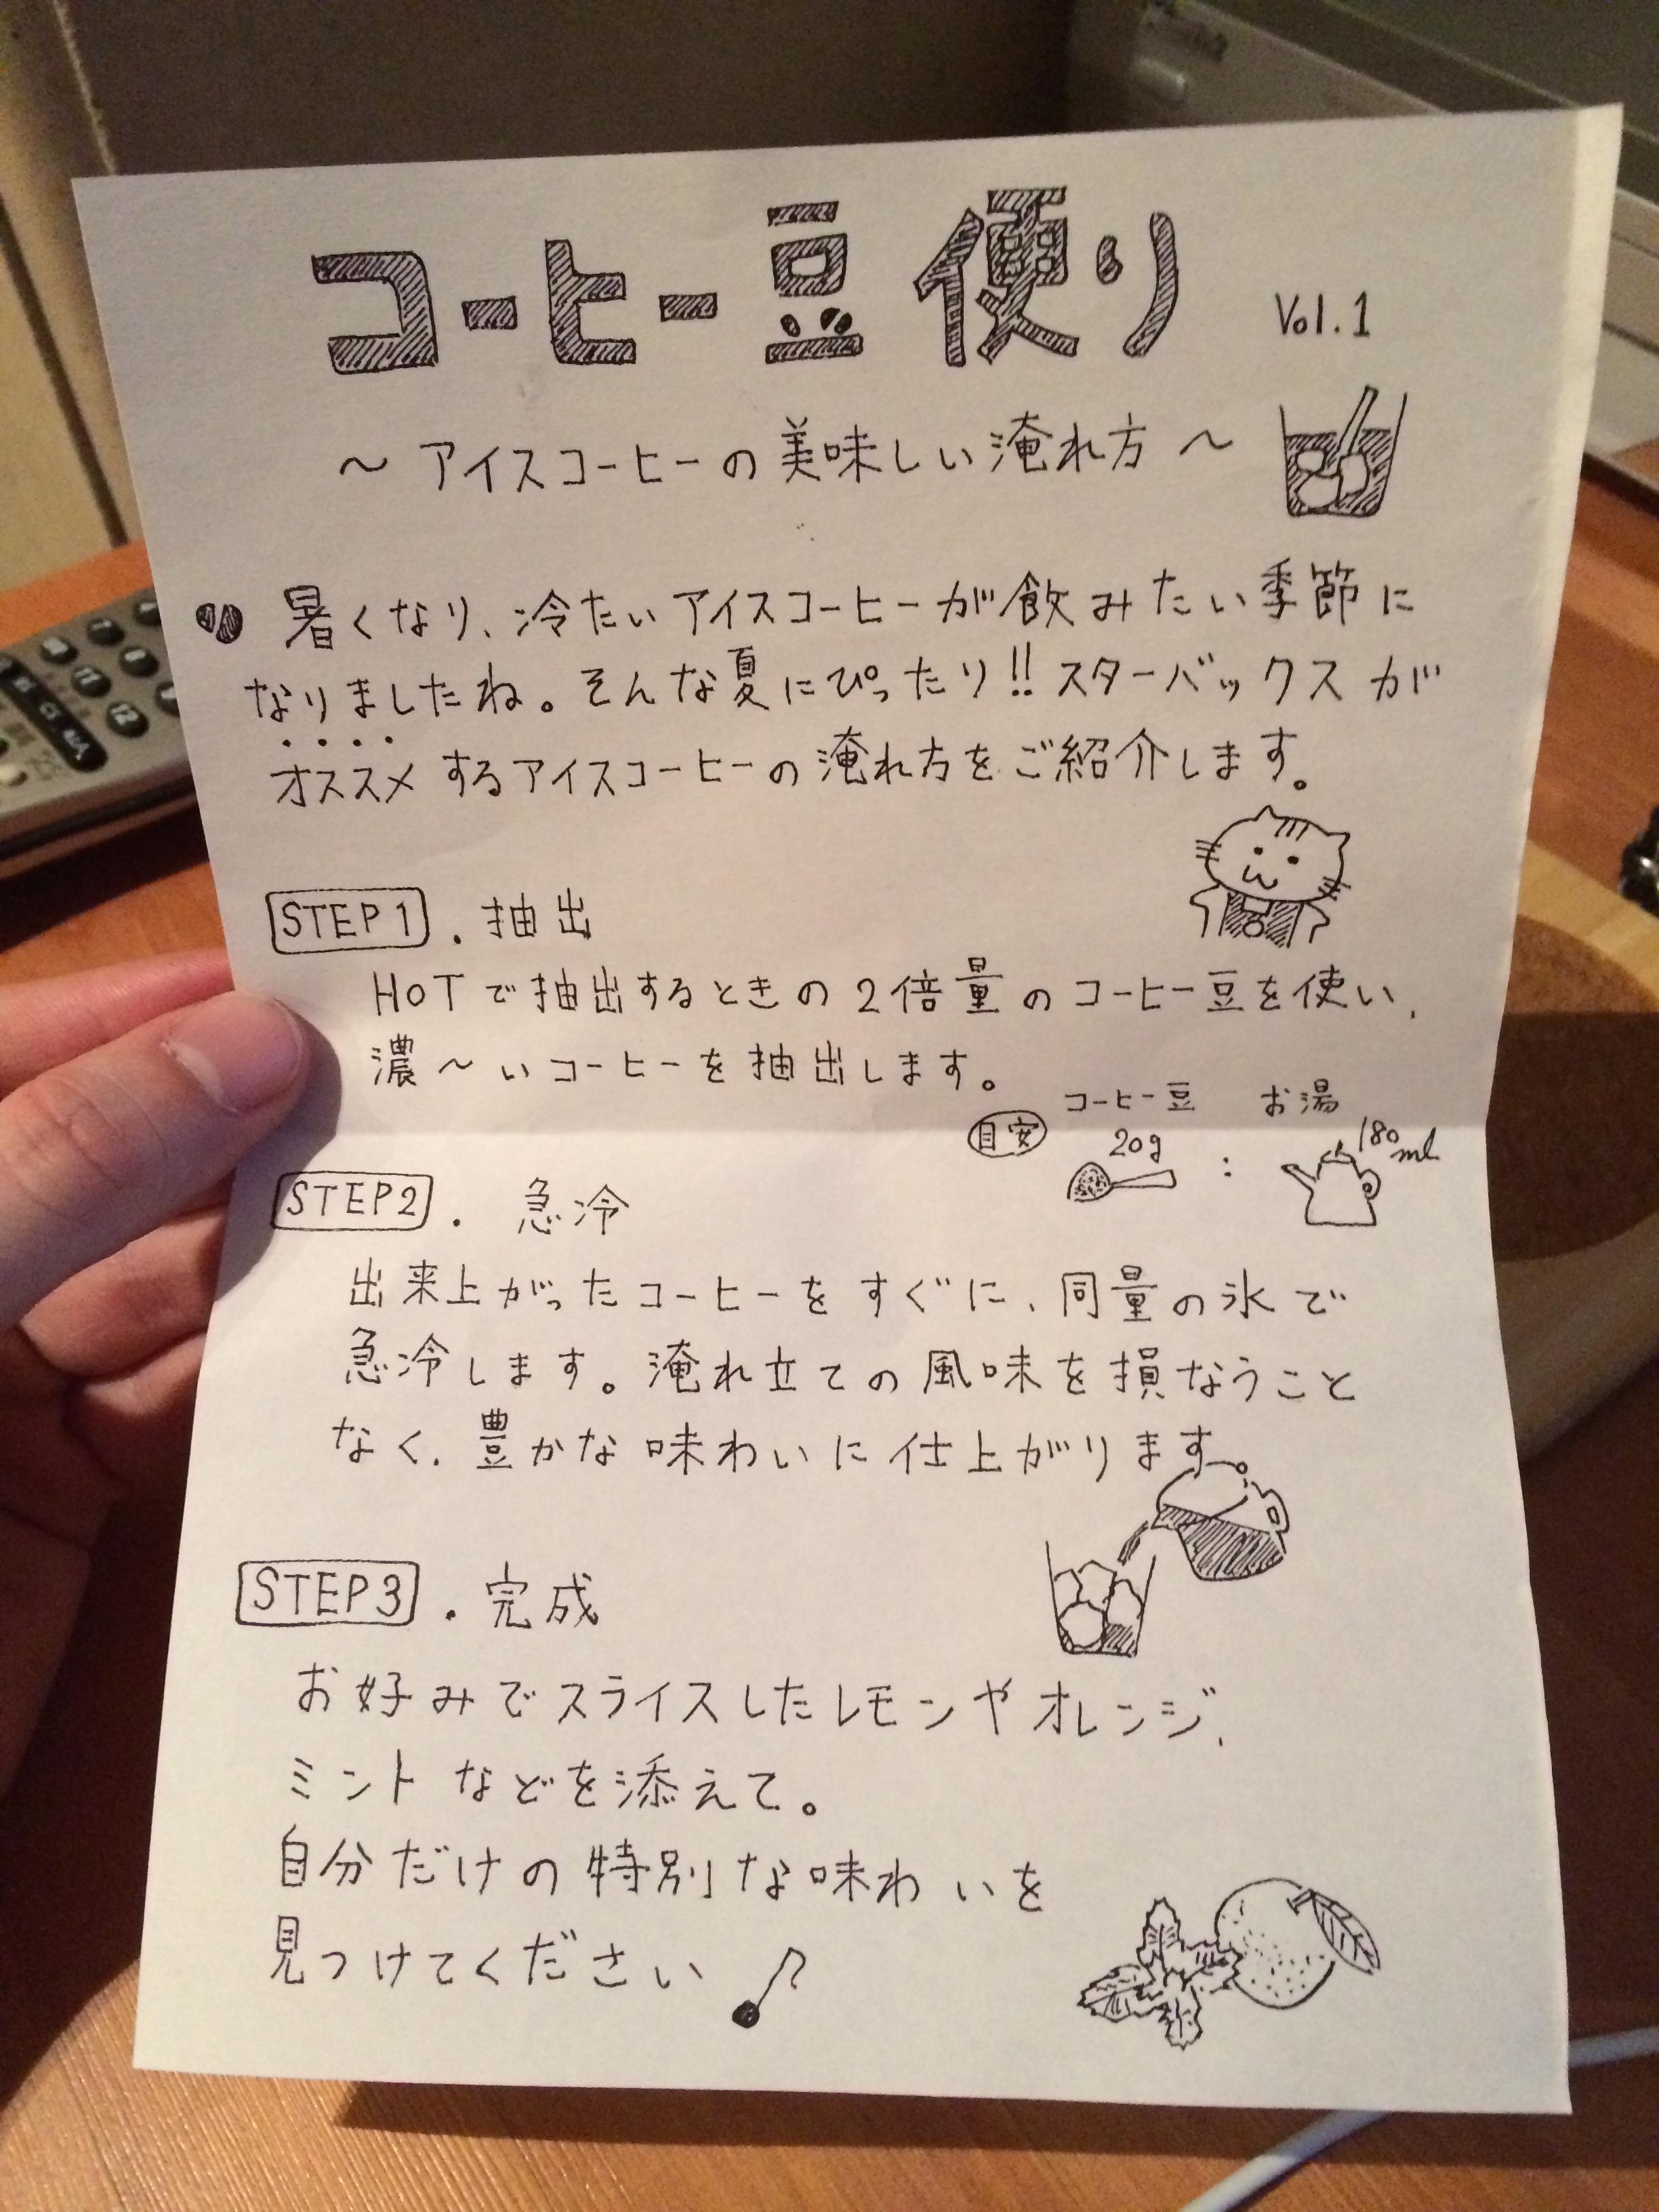 コーヒー豆便り Vol.1
～アイスコーヒーの美味しい淹れ方～
暑くなり、冷たいアイスコーヒーが飲みたい季節に
なりましたね。そんな夏にぴったり!! スターバックスが
オススメするアイスコーヒーの淹れ方をご紹介します。
STEP1. 抽出
HOTで抽出するときの2倍量のコーヒー豆を使い、
濃～いコーヒーを抽出します。
目安 コーヒー豆 20g : お湯 180ml
STEP2. 急冷
出来上がったコーヒーをすぐに、同量の氷で
急冷します。淹れ立ての風味を損なうこと
なく、豊かな味わいに仕上がります。
STEP3. 完成
お好みでスライスしたレモンやオレンジ、
ミントなどを添えて。
自分だけの特別な味わいを
見つけてください♪
12